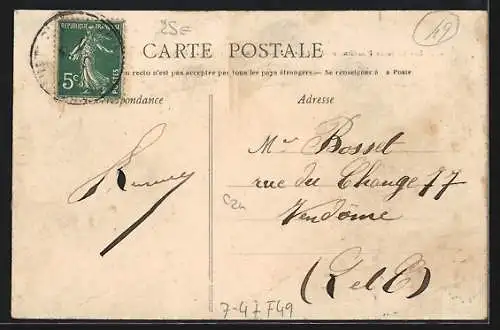 25€
49
REPUBLIQUE FRANÇAISE
5c
POSTES
CARTE POSTALE
recto n'est pas acceptée par tous les pays étrangers.— Se renseigner à a Poste
respondance
Adresse
Mr Bosset
rue du Change 77
Vendôme
(L et C)
7-47 F49